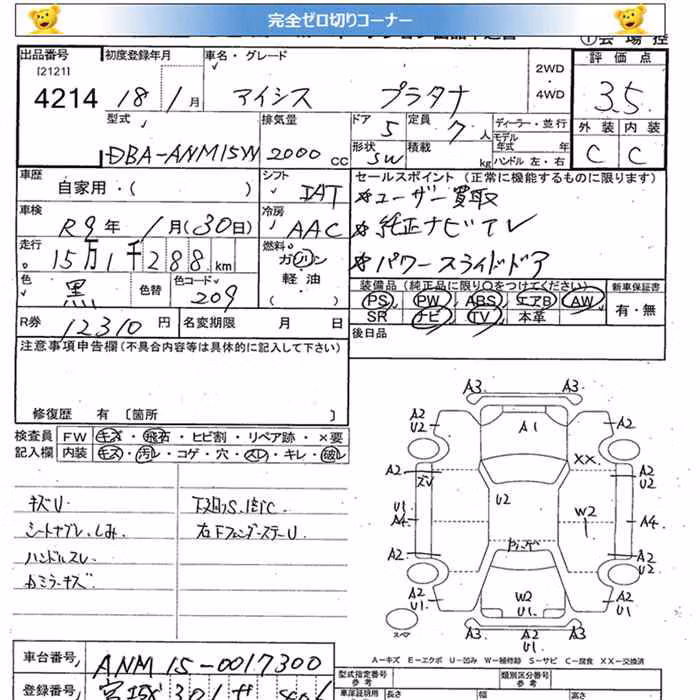 完全ゼロ切りコーナー
出品番号 初度登録年月 車名・グレード 2WD 4WD 評価点
[2121]
4214 18年 1月 アイシス プラタナ 3.5
型式 排気量 ドア 定員 ディーラー・並行 外装 内装
DBA-ANM15W 2000cc 5 7人 モデル年式 年 C C
形状 SW 積載 kg ハンドル 左・右
車歴 自家用・( ) シフト IAT セールスポイント (正常に機能するものに限ります)
車検 R9年 1月(30日) 冷房 AAC *ユーザー買取
*純正ナビTV
走行 15万1千288km 燃料 ガソリン 軽油 ( ) *パワースライドドア
色 黒 色替 色コード 209 装備品 (純正品に限り○をつけてください) 新車保証書
PS PW ABS エアB AW 有・無
R券 12310円 名変期限 月 日 SR ナビ TV 本革
注意事項申告欄(不具合内容等は具体的に記入して下さい) 後日品
修復歴 有 〔箇所 〕
検査員 FW キズ・飛石・ヒビ割・リペア跡・×要
記入欄 内装 キズ・汚レ・コゲ・穴・スレ・キレ・破レ
キズU
シートナブレ、しみ
ハンドルスレ
右Fフェンダーステー U
A3 A3
A2 U2 A1 A2 U2
XX
A2 A2 U2
U1 A4 U2 W2 A4
A2 A2 U2
A2 U1 W2 U1 A2 U1
スペア A2 U1
A－キズ E－エクボ U－凹み W－補修跡 S－サビ C－腐食 XX－交換済
車台番号 ANM15-0017300
登録番号 宮城301
型式指定番号 類別区分番号
参考 参考
車庫証明用 長さ 幅 高さ